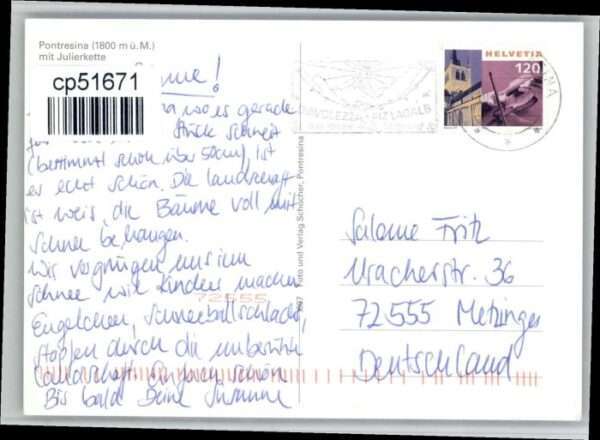 Pontresina (1800 m ü.M.)
mit Julierkette
cp51671
wo es gerade
Stück schneit
(bestimmt schon über 50cm), ist
es echt schön. Die Landschaft
ist weis, die Bäume voll mit
Schnee behangen.
Wir vergnügen uns im
Schnee wie Kinder, machen
Engelchen, Schneeballschlacht,
stapfen durch die unberührte
Landschaft. Einfach schön
Bis bald Deine Susanne
72555
Foto und Verlag Schocher, Pontresina
DIAVOLEZZA - PIZ LAGALB
HELVETIA
120
Salome Fritz
Uracherstr. 36
72555 Metzingen
Deutschland